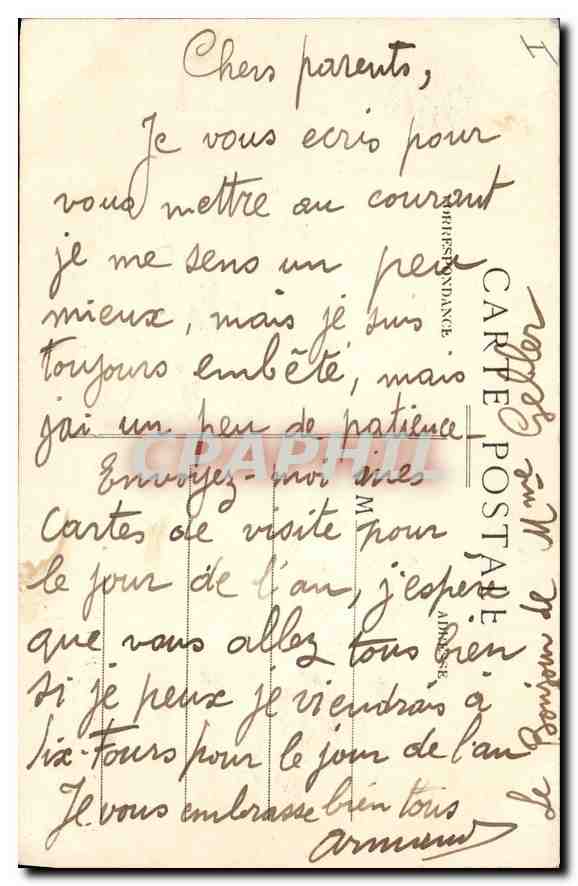 Chers parents,
Je vous ecris pour
vous mettre au courant
je me sens un peu
mieux, mais je suis
toujours embêté, mais
j'ai un peu de patience
Envoyez-moi mes
Cartes de visite pour
le jour de l'an, j'espere
que vous allez tous bien
si je peux je viendrais à
Six-Fours pour le jour de l'an
Je vous embrasse bien tous
Armand
CARTE POSTALE
CORRESPONDANCE
ADRESSE
M
Bonjour de
CPAPHIL